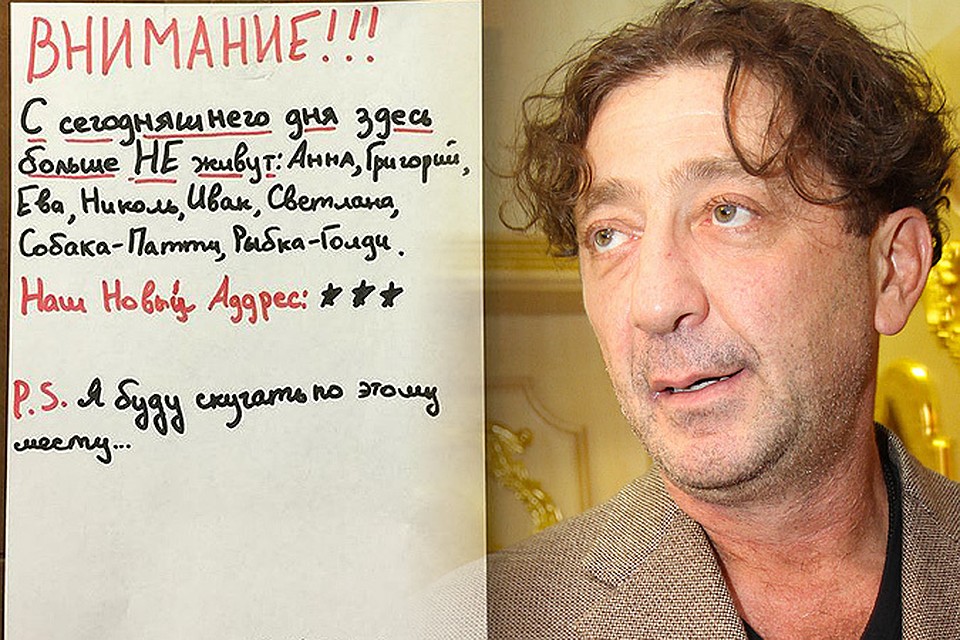 ВНИМАНИЕ!!!
С сегодняшнего дня здесь
больше НЕ живут: Анна, Григорий,
Ева, Николь, Иван, Светлана,
Собака-Патти, Рыбка-Голди.
Наш Новый Аддрес: ★★★
P.S. Я буду скучать по этому
месту...